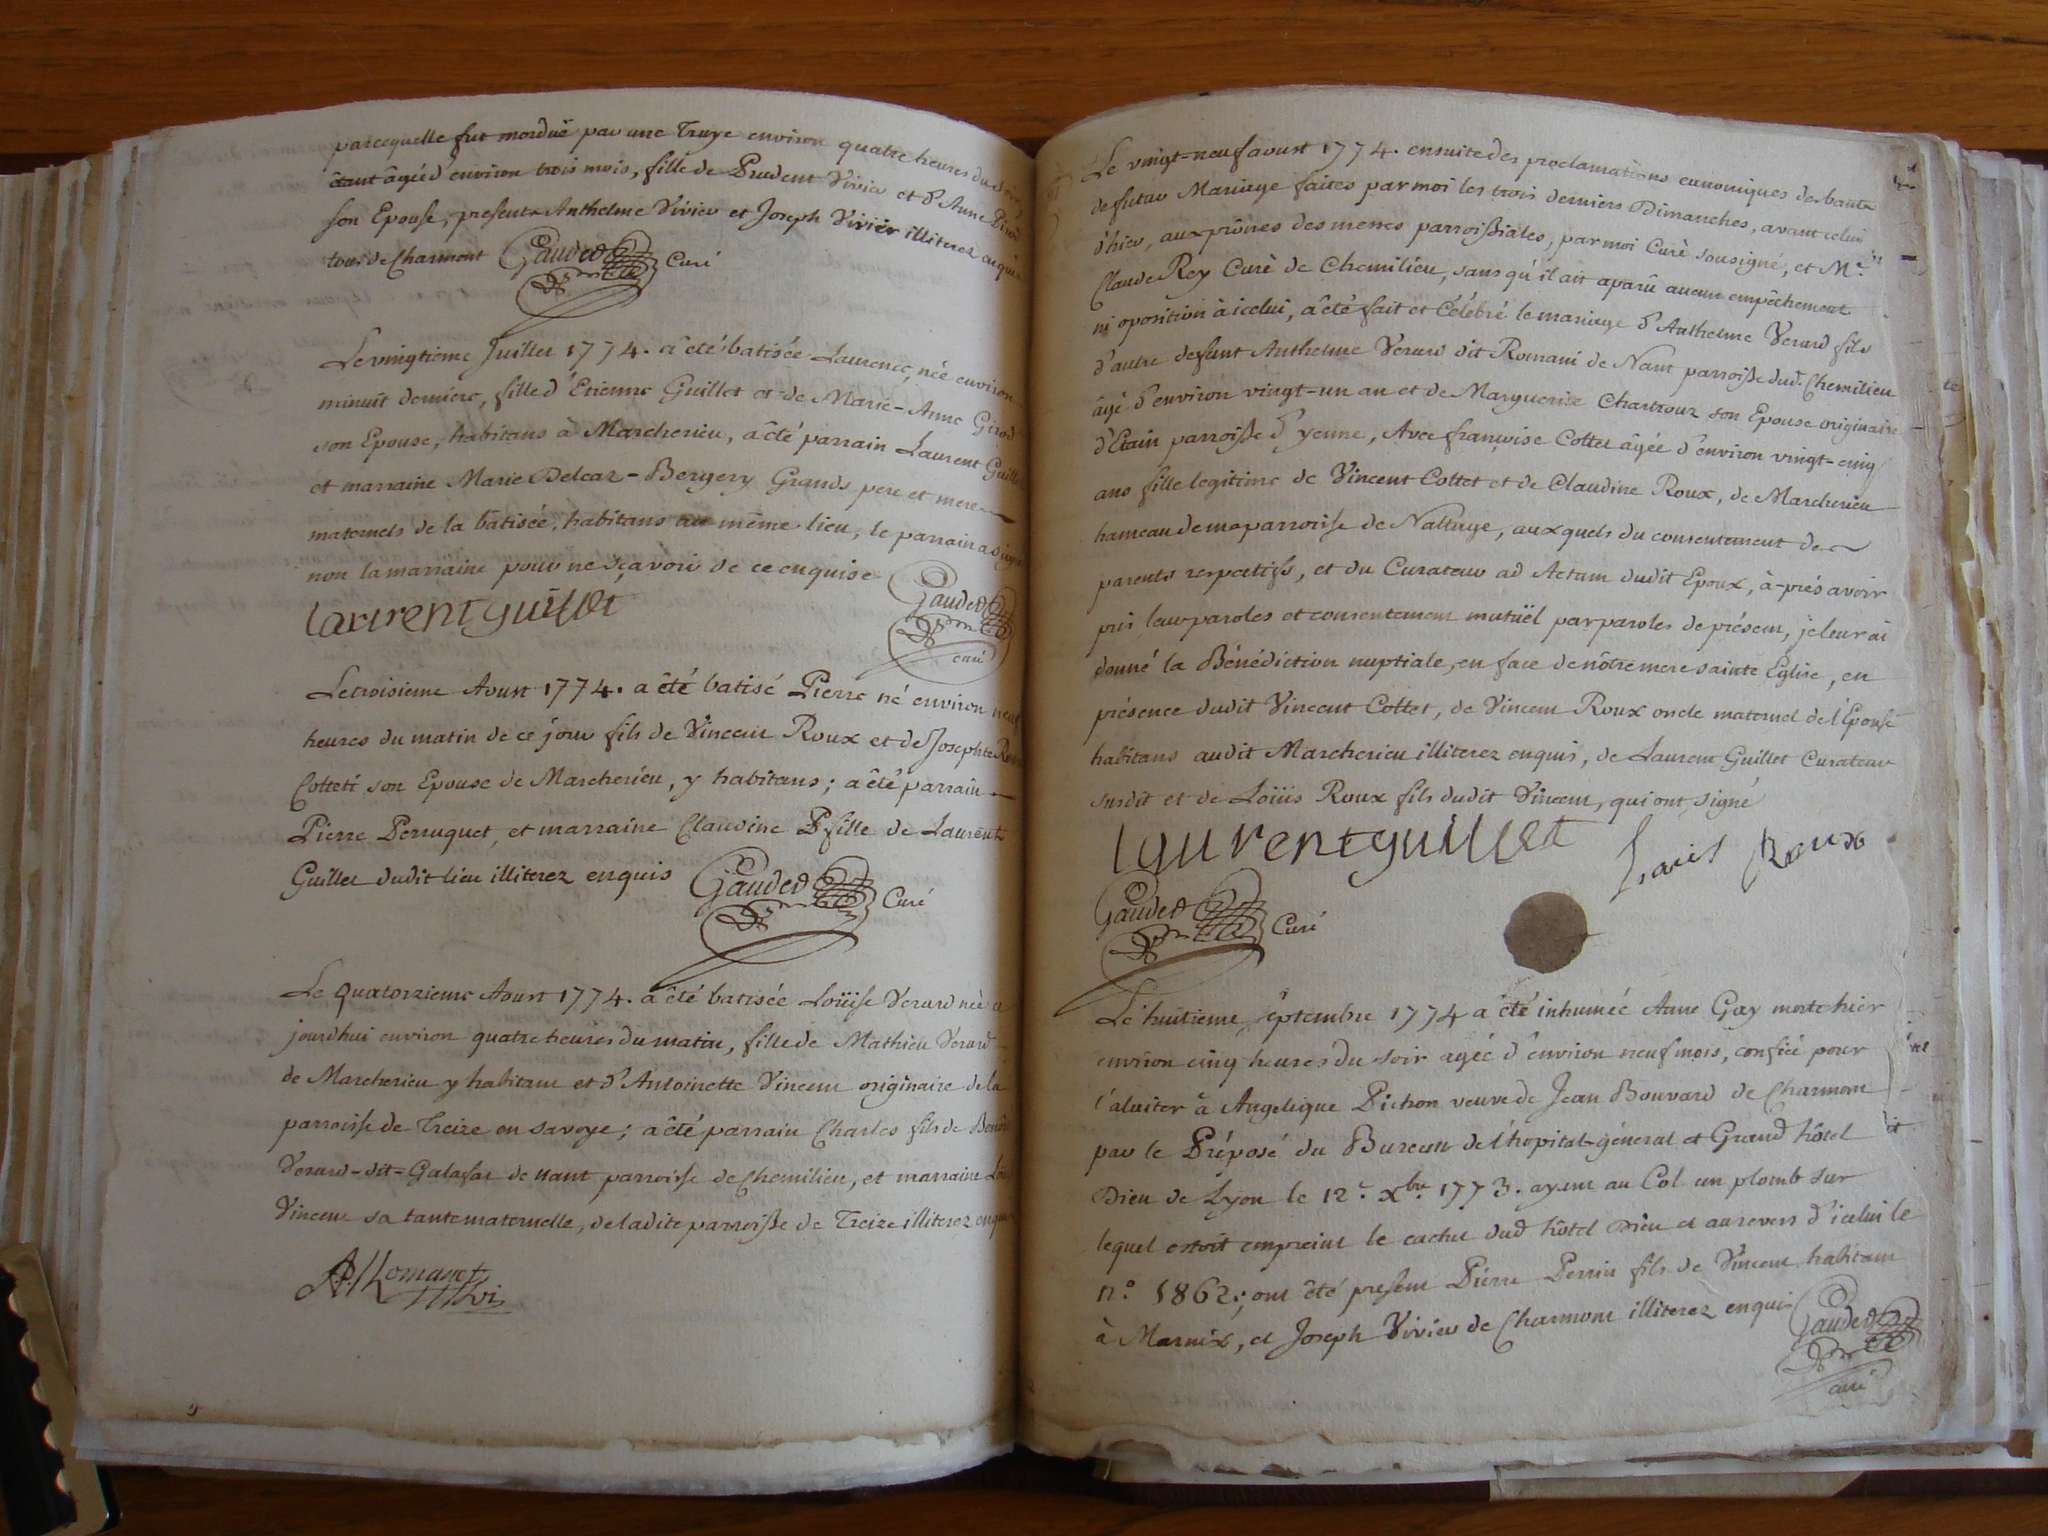 parcequelle fut morduë par une Truye environ quatre heures du soir
êtant âgée d'environ trois mois, fille de Prudent Vivier et d'Anne
son Epouse, presents Anthelme Vivier et Joseph Vivier illiterez enquis
tous de Charmont Gaudet Curé
Le vingtieme Juillet 1774. a été batisée Laurence, née environ
minuit derniere, fille d'Etienne Guillet et de Marie-Anne Girod
son Epouse, habitans à Marcherieu, a été parrain Laurent Guillet
et marraine Marie Delcar-Bergery Grands pere et mere
maternels de la bâtisée, habitans au même lieu, le parrain a signé
non la marraine pour ne sçavoir de ce enquise
Gaudet
curé
laurent guillet
Le troisieme Aoust 1774. a êté batisé Pierre né environ neuf
heures du matin de ce jour fils de Vincent Roux et de Josephte
Cottett son Epouse de Marcherieu, y habitans; a êté parrain
Pierre Perruquet, et marraine Claudine fille de Laurent
Guillet dudit lieu illiterez enquis Gaudet Curé
Le quatorzieme Aoust 1774. a êté batisée Loüise Verard née ce
jourdhui environ quatre heures du matin, fille de Mathieu Verard
de Marcherieu y habitant et d'Antoinette Vincent originaire de la
parroisse de Treize en savoye; a êté parrain Charles fils de Benoit
Verard-dit-Galafar de nant parroisse de Chemilieu, et marraine
Vincent sa tante maternelle, de ladite parroisse de Treize illiterez enquis
Le vingt-neuf aoust 1774. ensuite des proclamations canoniques des bants
de futur Mariage faites par moi les trois derniers Dimanches, avant celui
d'hier, aux prônes des messes parroissiales, par moi Curé sousigné, et Mre
Claude Rey Curé de Chemilieu, sans qu'il ait aparû aucun empêchement
ni oposition à icelui, a été fait et Célébré le mariage d'Anthelme Verard fils
d'autre defunt Anthelme Verard dit Romani de Nant parroisse dud. Chemilieu
âgé d'environ vingt-un an et de Marguerite Chartroux son Epouse originaire
d'Etain parroisse d'yenne, Avec françoise Cottet âgée d'environ vingt-cinq
ans fille legitime de Vincent Cottet et de Claudine Roux, de Marcherieu
hameau de ma parroisse de Nattage, auxquels du consentement de
parents respectifs, et du Curateur ad Actum dudit Epoux, à-prés avoir
pris leur paroles et consentement mutüel par paroles de présent, je leur ai
donné la Bénédiction nuptiale, en face de nôtre mere sainte Eglise, en
présence dudit Vincent Cottet, de Vincent Roux oncle maternel de l'Epouse
habitans audit Marcherieu illiterez enquis, de Laurent Guillet Curateur
susdit et de Loüis Roux fils dudit Vincent, qui ont signé
laurent guillet Louis Roux
Gaudet Curé
Le huitieme septembre 1774 a êté inhumée Anne Gay morte hier
environ cinq heures du soir agée d'environ neuf mois, confiée pour
l'alaiter à Angelique Pichon veuve de Jean Bouvard de Charmont
par le Préposé du Bureau de l'hopital-géneral et Grand hôtel
Dieu de Lyon le 12e. xbre 1773. ayant au Col un plomb sur
lequel estoit empreint le cachet dud hôtel Dieu et au revers d'icelui le
n.o 1862.; ont êté present Pierre Perrin fils de Vincent habitant
à Marnix, et Joseph Vivier de Charmont illiterez enquis Gaudet
curé